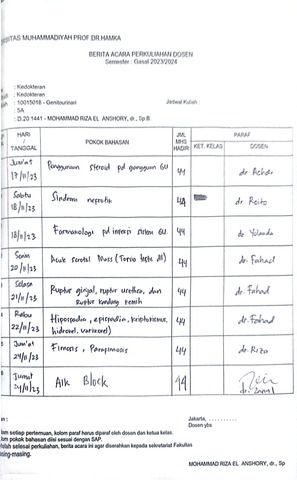 RSITAS MUHAMMADIYAH PROF.DR HAMKA
BERITA ACARA PERKULIAHAN DOSEN
Semester : Gasal 2023/2024
: Kedokteran
: Kedokteran
: 10015018 - Genitourinari
Jadwal Kuliah :
: 5A
: D.20.1441 - MOHAMMAD RIZA EL ANSHORY, dr., Sp.B
HARI / TANGGAL
POKOK BAHASAN
JML MHS HADIR
PARAF
KET. KELAS
DOSEN
Jum'at 17/11/23 Penggunaan Steroid pd gangguan GU 44
Sabtu 18/11/23 Sindrom nefrotik 44
18/11/23 Farmakologi pd infeksi sistem GU 44 dr Yolanda
Senin 20/11/23 Acute Scrotal Mass (Torsio testis dll) 44 dr. Fahad
Selasa 21/11/23 Ruptur ginjal, ruptur urethra, dan Ruptur kandung kemih 44 dr. Fahad
Rabu 22/11/23 Hipospadia, epispadia, kriptorkismus, hidrokel, varikokel 44 dr. Fahad
Jum'at 24/11/23 Fimosis, Parafimosis 44 dr. Riza
Jumat 24/11/23 AIK Block 44
an :
Jakarta, ..........
lam setiap pertemuan, kolom paraf harus diparaf oleh dosen dan ketua kelas.
Dosen ybs
lom pokok bahasan diisi sesuai dengan SAP.
telah selesai perkuliahan, berita acara ini agar diserahkan kepada sekretariat Fakultas
asing-masing.
MOHAMMAD RIZA EL ANSHORY, dr., Sp